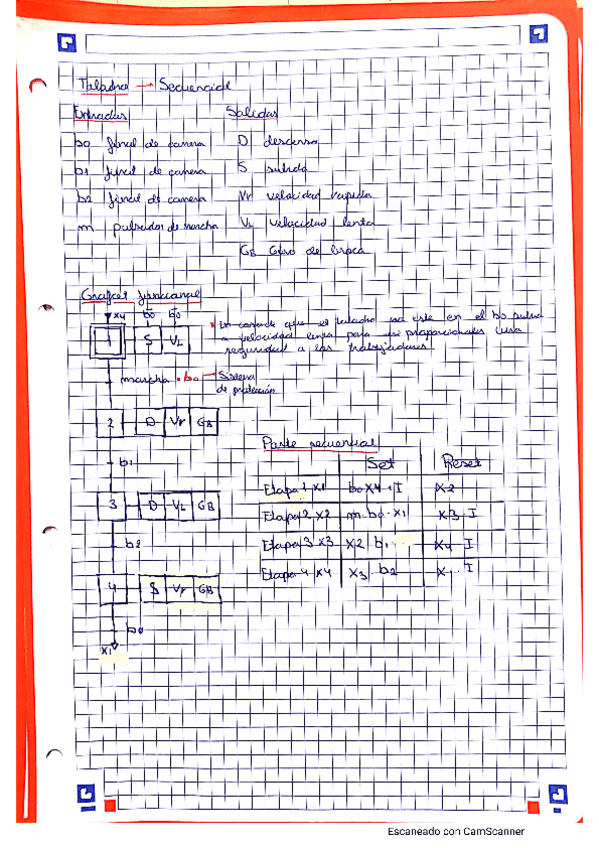 Taladro → Secuencial
Entradas Salidas
b0 final de carrera D descenso
b1 final de carrera S subida
b2 final de carrera Vr velocidad rapida
m pulsador de marcha VL velocidad lenta
GB Giro de broca
Grafcet funcional
X4 b0 b0
1 S VL
* En caso de que el taladro no este en el b0 suba
a velocidad lenta para asi proporcionales una
seguridad a los trabajadores
marcha · b0 → Sistema
de protección
2 D Vr GB
b1
3 D VL GB
b2
4 S Vr GB
b0
X1
Parte secuencial
Set Reset
Etapa 1 X1 b0 X4 + I X2
Etapa 2 X2 m · b0 · X1 X3 + I
Etapa 3 X3 X2 · b1 X4 + I
Etapa 4 X4 X3 · b2 X1 + I
Escaneado con CamScanner